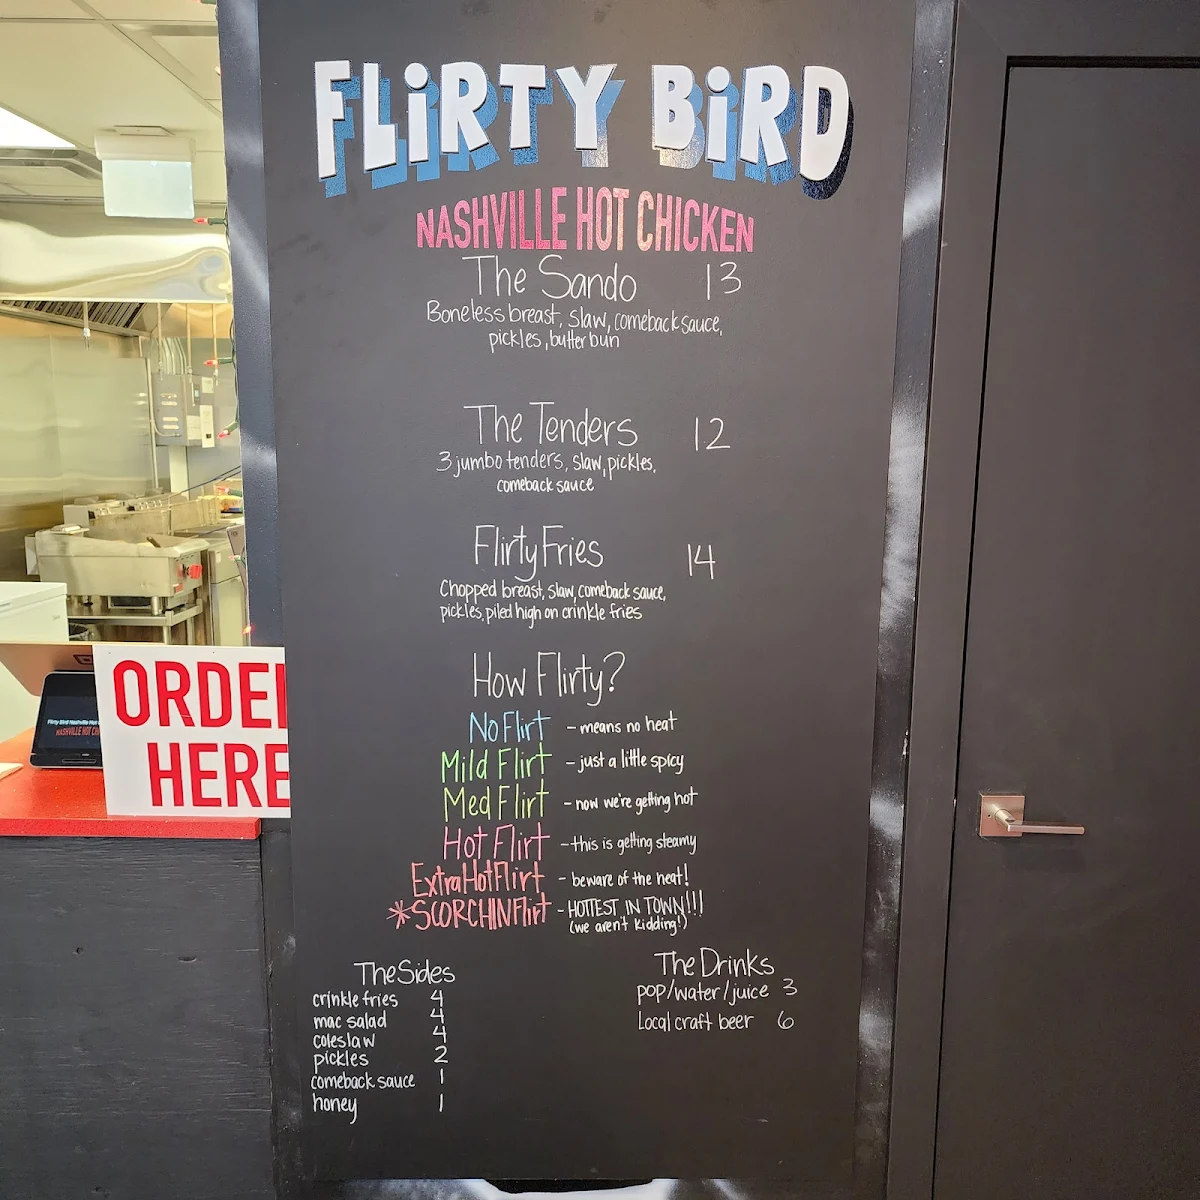 FLiRTY BiRD
NASHVILLE HOT CHICKEN
The Sando 13
Boneless breast, slaw, comeback sauce,
pickles, butter bun
The Tenders 12
3 jumbo tenders, slaw, pickles,
comeback sauce
Flirty Fries 14
Chopped breast, slaw, comeback sauce,
pickles, piled high on crinkle fries
How Flirty?
No Flirt - means no heat
Mild Flirt - just a little spicy
Med Flirt - now we're getting hot
Hot Flirt - this is getting steamy
Extra Hot Flirt - beware of the heat!
*SCORCHIN Flirt - HOTTEST IN TOWN!!!
(we aren't kidding!)
The Sides
crinkle fries 4
mac salad 4
coleslaw 4
pickles 2
comeback sauce 1
honey 1
The Drinks
pop/water/juice 3
Local craft beer 6
ORDER
HERE
Flirty Bird Nashville Hot
NASHVILLE HOT